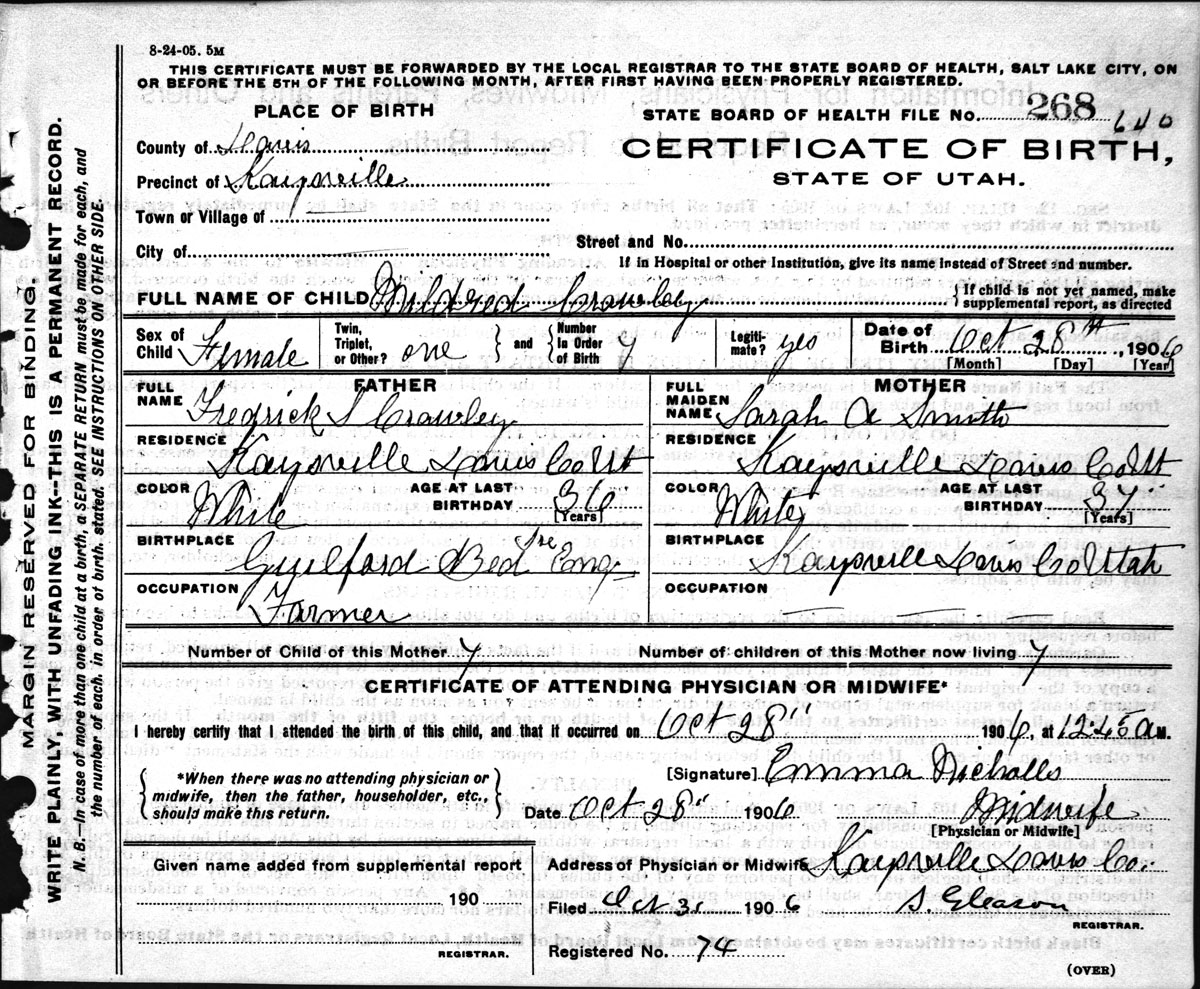 8-24-05. 5M
THIS CERTIFICATE MUST BE FORWARDED BY THE LOCAL REGISTRAR TO THE STATE BOARD OF HEALTH, SALT LAKE CITY, ON
OR BEFORE THE 5TH OF THE FOLLOWING MONTH, AFTER FIRST HAVING BEEN PROPERLY REGISTERED.
PLACE OF BIRTH
STATE BOARD OF HEALTH FILE No. 268 640
County of Davis
CERTIFICATE OF BIRTH,
Precinct of Kaysville
STATE OF UTAH.
Town or Village of
City of
Street and No.
If in Hospital or other Institution, give its name instead of Street and number.
FULL NAME OF CHILD Mildred Crawley { If child is not yet named, make
supplemental report, as directed
Sex of Child Female
Twin, Triplet, or Other? one } and { Number In Order of Birth 7
Legiti-mate? yes
Date of Birth Oct 28th, 1906
[Month] [Day] [Year]
FATHER
FULL NAME Fredrick S Crawley
RESIDENCE Kaysville Davis Co Ut
COLOR White AGE AT LAST BIRTHDAY 36 [Years]
BIRTHPLACE Guilford Bedshe Eng
OCCUPATION Farmer
MOTHER
FULL MAIDEN NAME Sarah A Smith
RESIDENCE Kaysville Davis Co Ut
COLOR White AGE AT LAST BIRTHDAY 37 [Years]
BIRTHPLACE Kaysville Davis Co Utah
OCCUPATION
Number of Child of this Mother 7 Number of children of this Mother now living 7
CERTIFICATE OF ATTENDING PHYSICIAN OR MIDWIFE*
I hereby certify that I attended the birth of this child, and that it occurred on Oct 28" 1906, at 12 45 a M.
{ *When there was no attending physician or
midwife, then the father, householder, etc.,
should make this return. }
[Signature] Emma Nicholls
Date Oct 28" 1906 Midwife
[Physician or Midwife]
Given name added from supplemental report
190
REGISTRAR.
Address of Physician or Midwife Kaysville Davis Co.
Filed Oct 31 1906 S Gleason
REGISTRAR.
Registered No. 74
(OVER)
MARGIN RESERVED FOR BINDING.
WRITE PLAINLY, WITH UNFADING INK--THIS IS A PERMANENT RECORD.
N. B.--In case of more than one child at a birth, a SEPARATE RETURN must be made for each, and
the number of each, in order of birth, stated. SEE INSTRUCTIONS ON OTHER SIDE.